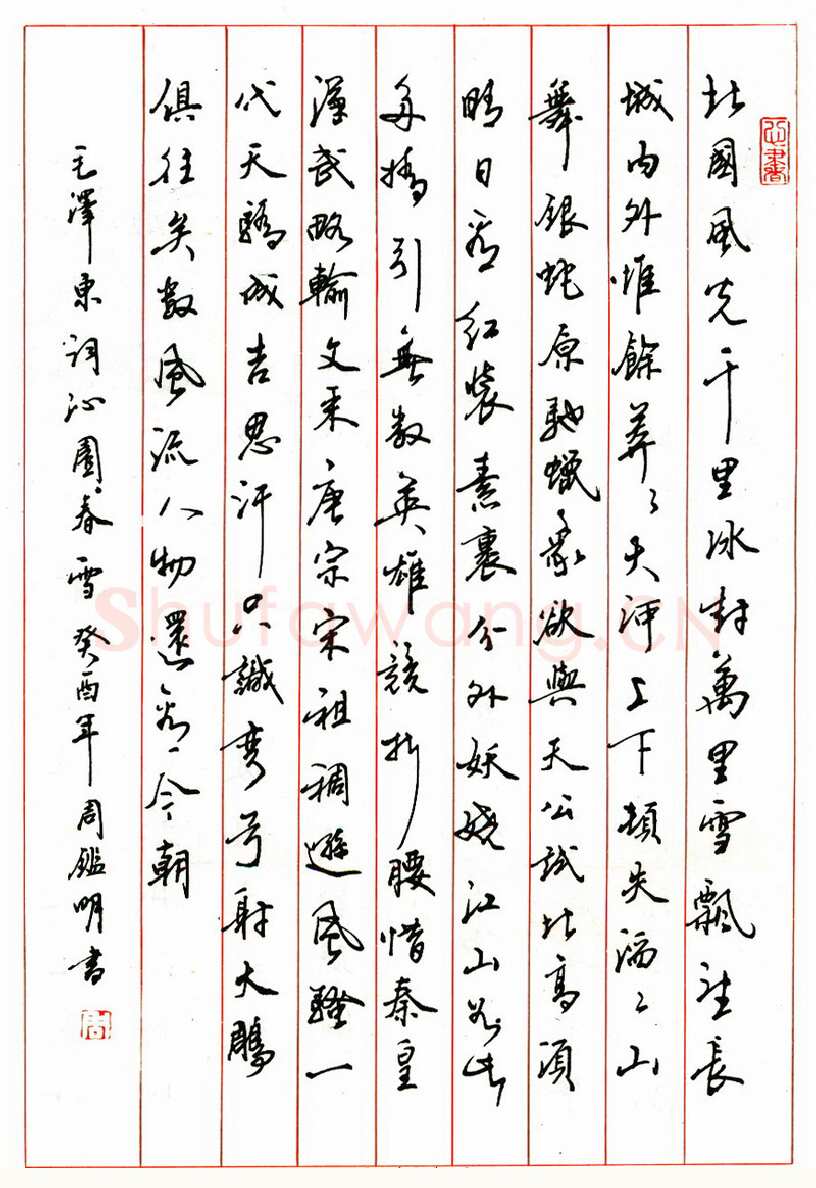 北國風光千里冰封萬里雪飄望長
城内外惟餘莽々大河上下頓失滔々山
舞銀蛇原馳蠟象欲與天公試比高須
晴日看紅裝素裹分外妖嬈江山如此
多嬌引無數英雄競折腰惜秦皇
漢武略輸文采唐宗宋祖稍遜風騷一
代天驕成吉思汗只識彎弓射大鵰
俱往矣數風流人物還看今朝
毛澤東詞沁園春雪癸酉年周鑑明書
周
Shufawang.CN